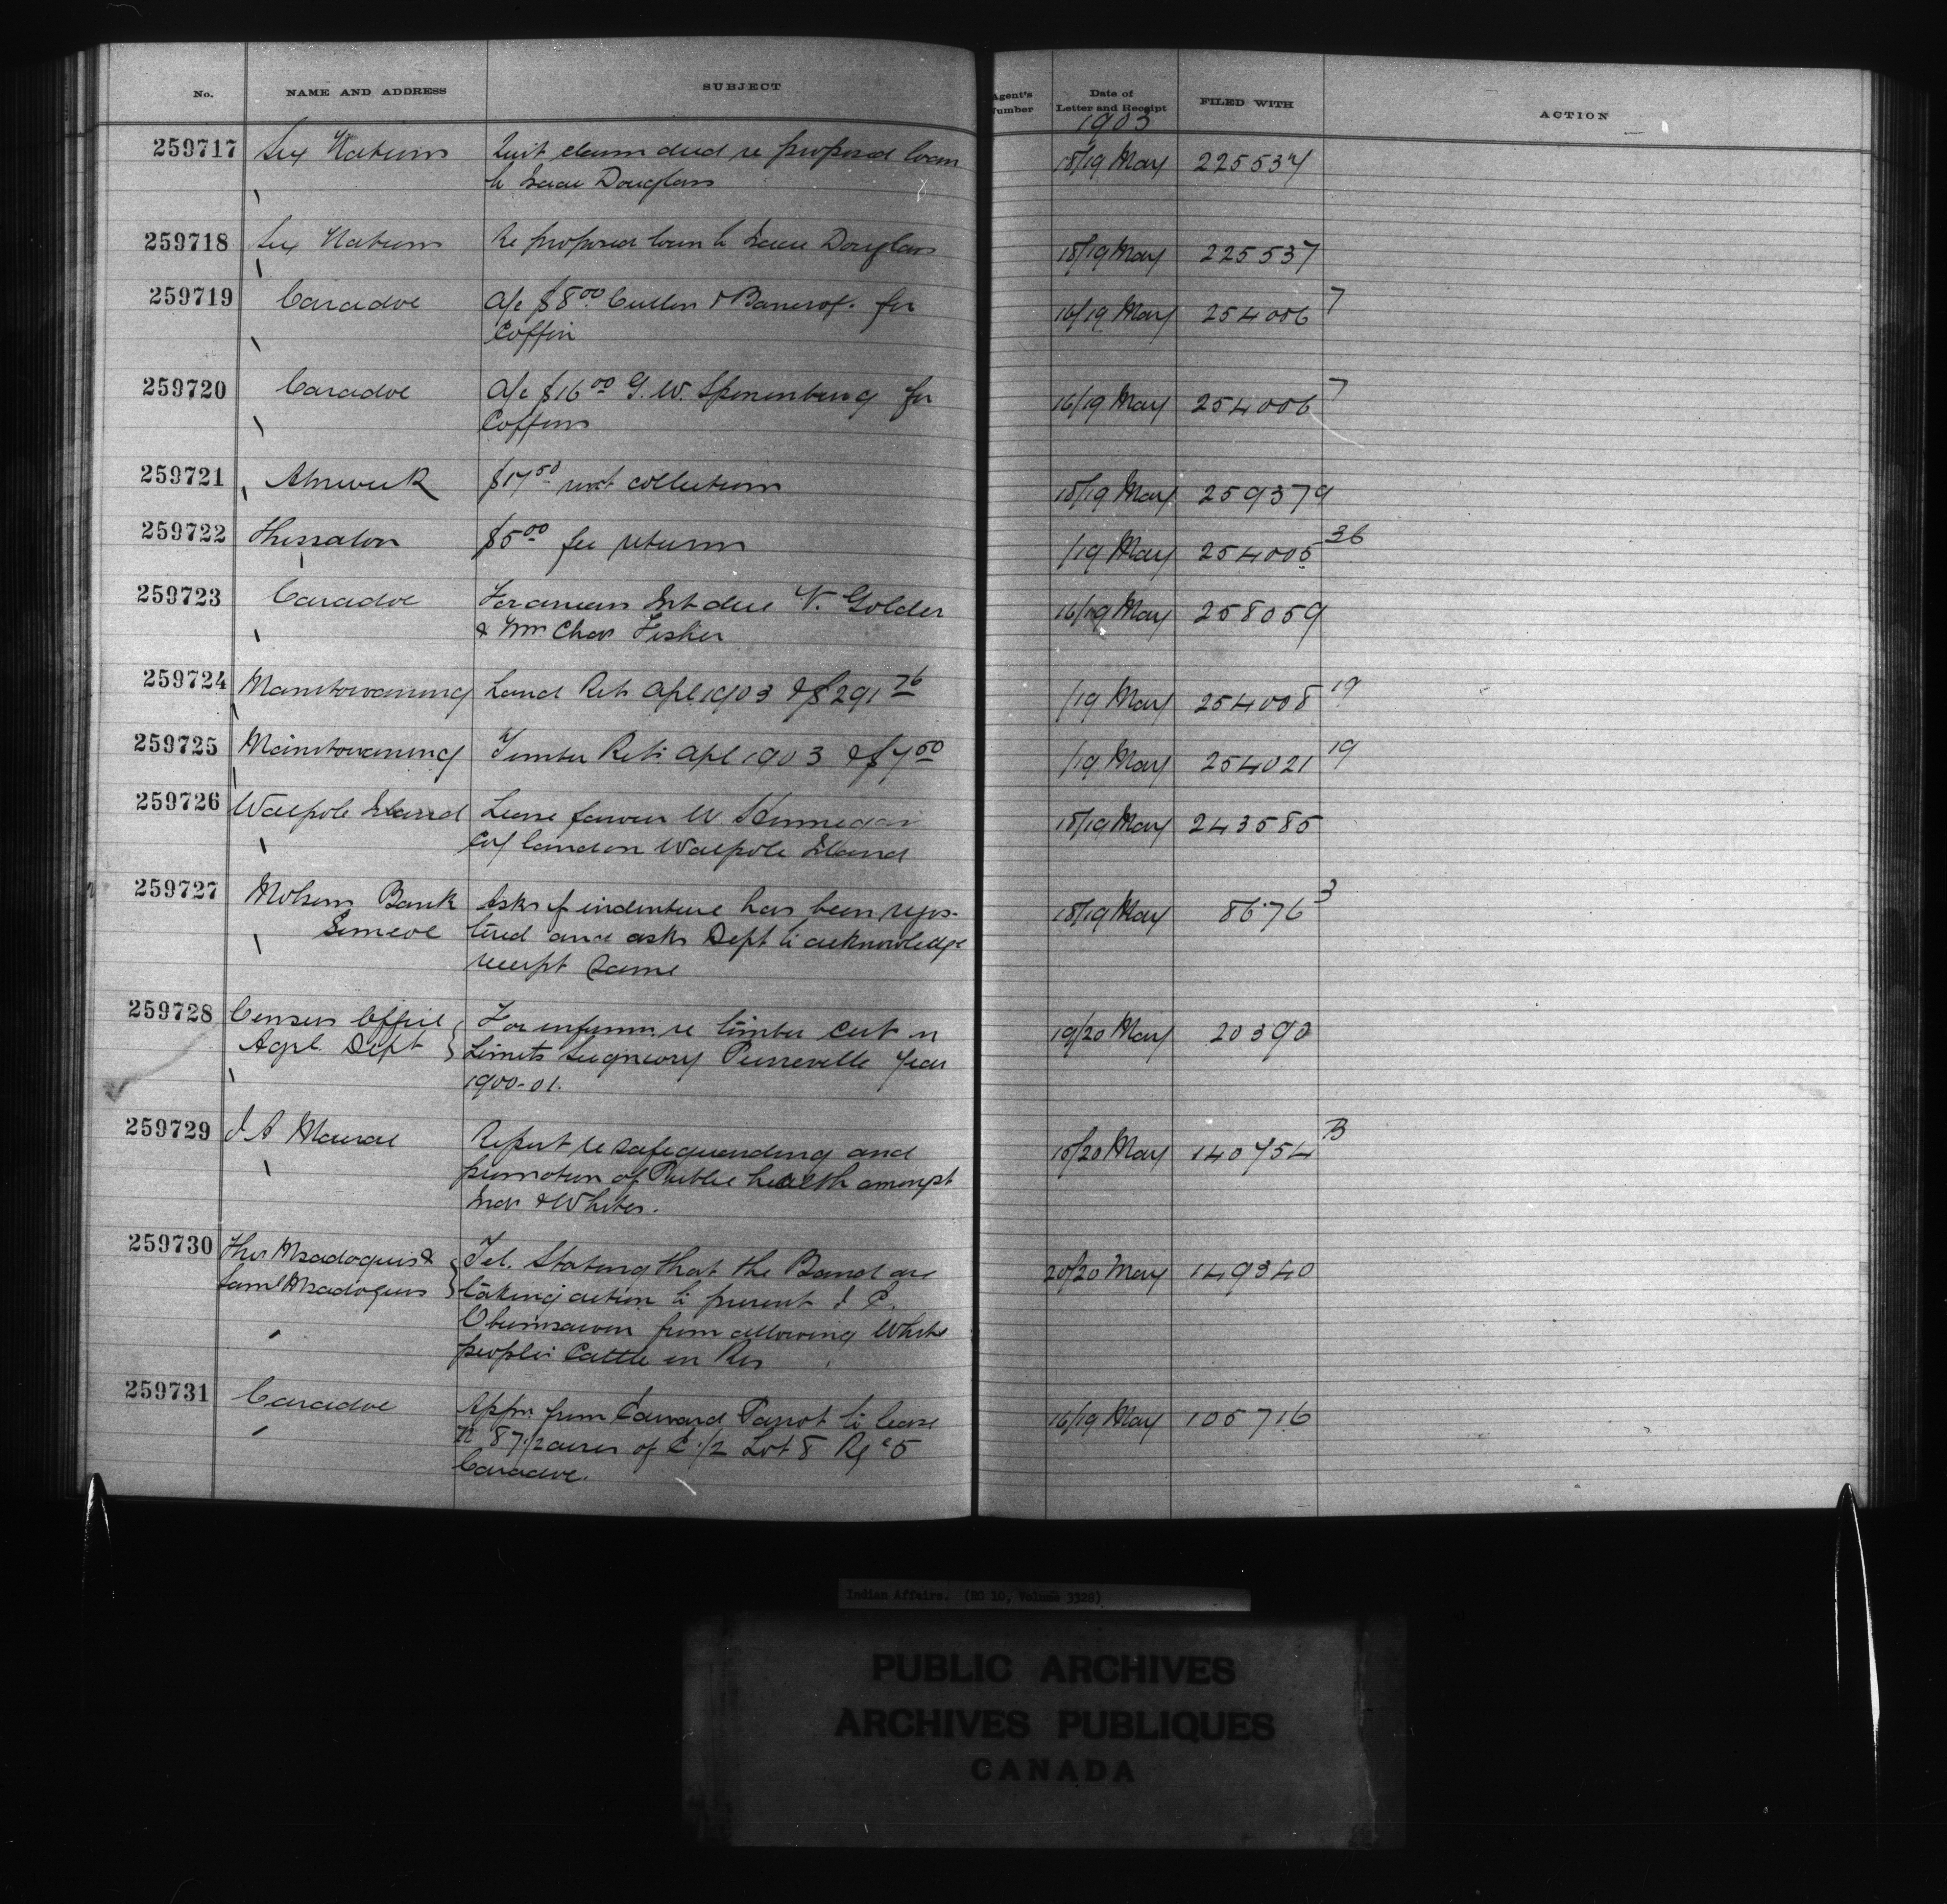 No. NAME AND ADDRESS SUBJECT Agent's Number Date of Letter and Receipt FILED WITH ACTION
1903
259717 Six Nations Quit claim deed re proposed loan 18/19 May 225537
to Isaac Douglas
259718 Six Nations Re proposed loan to Isaac Douglas 18/19 May 225537
259719 Caradoc A/c $8.00 Cullen & Bancrof. for 16/19 May 254006 7
Coffin
259720 Caradoc A/c $16.00 G. W. for 16/19 May 254006 7
Coffins
259721 Alnwick $17.50 rent collections 18/19 May 259379
259722 Thessalon $5.00 fee returns /19 May 254005 36
259723 Caradoc For arrears Int due V. Golder 16/19 May 258059
& Mrs Chas Fisher
259724 Manitowaning Land Ret Apl 1903 & $291.76 /19 May 254008 19
259725 Manitowaning Timber Ret. Apl 1903 & $7.50 /19 May 254021 19
259726 Walpole Island Lease favour W 18/19 May 243585
land on Walpole Island
259727 Molsons Bank Asks if indenture has been regis- 18/19 May 8676 3
Simcoe tered and asks Dept to acknowledge
receipt same
259728 Census Office For inform. re timber cut on 19/20 May 20390
Agrl. Dept Limits Seigneury Pierreville Year
1900-01.
259729 J A Macrae Report re safeguarding and 18/20 May 140754 B
promotion of Public health amongst
Inds & Whites.
259730 Thos Msadoquis & Tel. Stating that the Band are 20/20 May 149340
Saml Msadoquis taking action to prevent J C.
Obumsawin from allowing White
peoples Cattle on Res
259731 Caradoc Appn. from Edward Parrot to lease 16/19 May 105716
N 87 1/2 acres of E 1/2 Lot 8 Rg 5
Caradoc.
Indian Affairs. (RG 10, Volume 3328)
PUBLIC ARCHIVES
ARCHIVES PUBLIQUES
CANADA